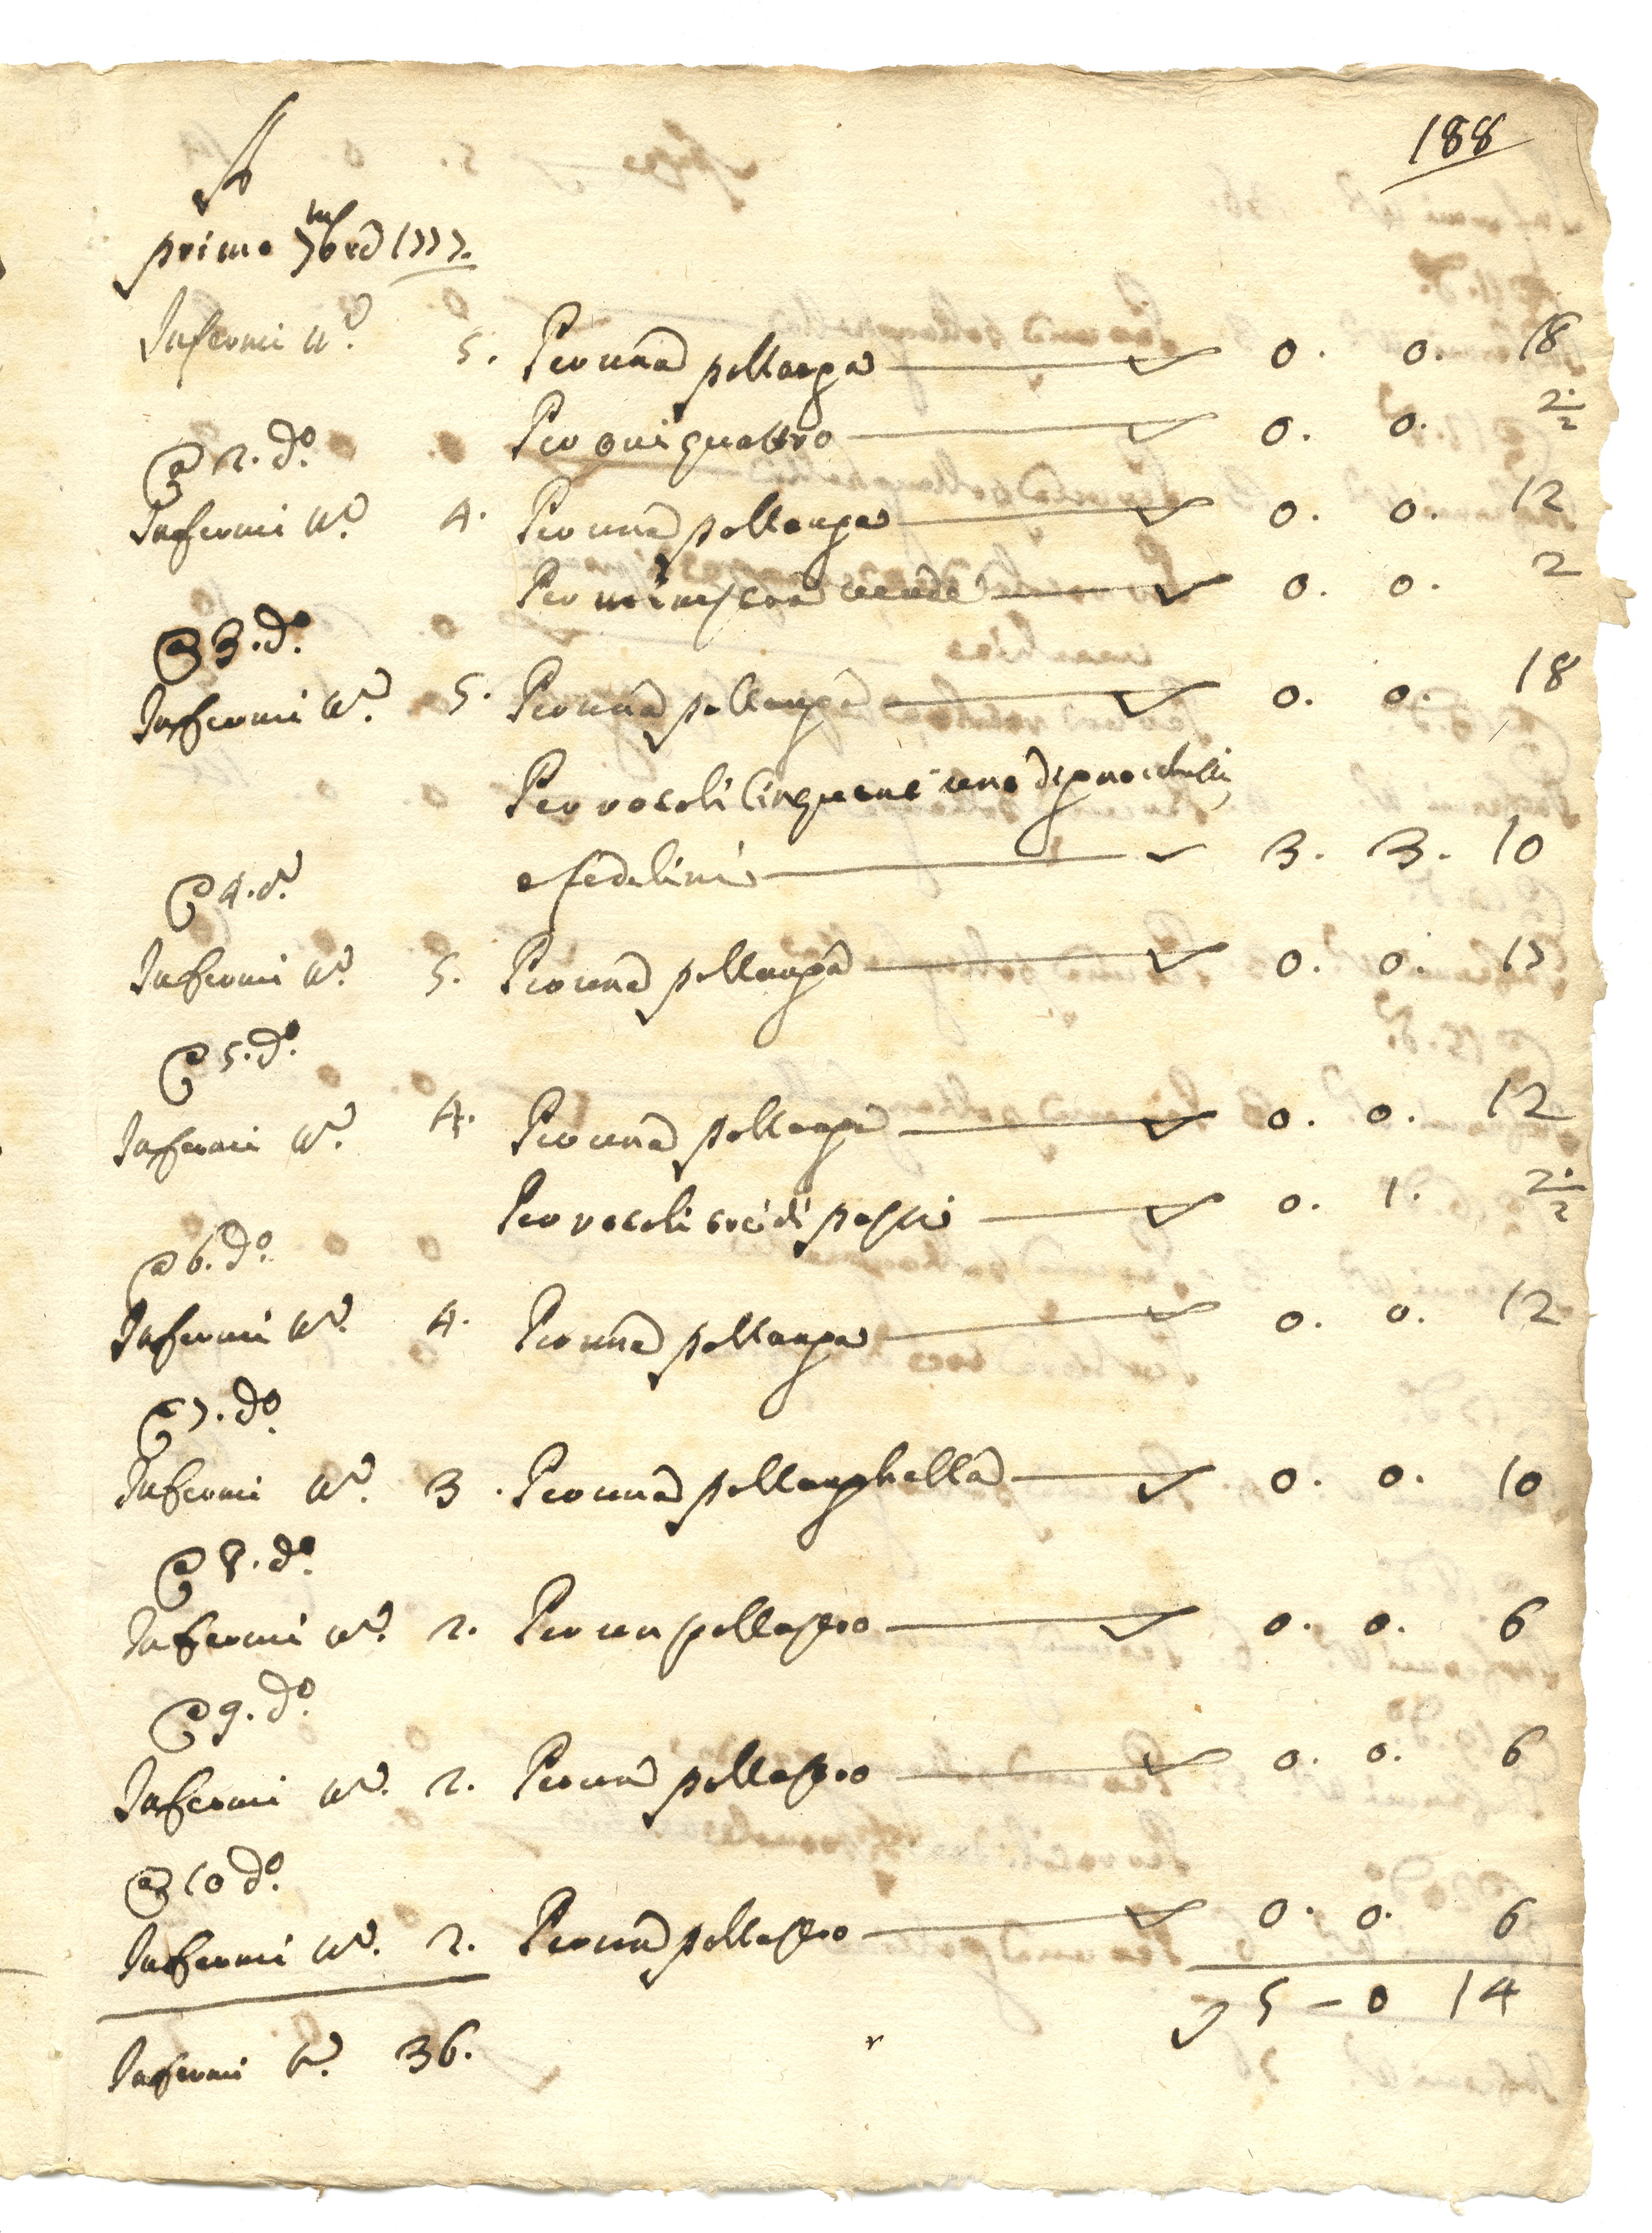 188
primo 7mbrẽ 1777.
Infermi nº. 5. Per una pollanga 0. 0. 18
Per ovi quattro 0. 0. 2.½
@ 2. dº.
Infermi nº. 4. Per una pollanga 0. 0. 12
Per minescra verde 0. 0. 2
@ 3. dº.
Infermi nº. 5. Per una pollanga 0. 0. 18
Per rocoli cinquant uno di gnocchilli,
e fedelini 3. 3. 10
@ 4. dº.
Infermi nº. 5. Per una pollanga 0. 0. 17
@ 5. dº.
Infermi nº. 4. Per una pollanga 0. 0. 12
Per rocoli di 0. 1. 2.½
@ 6. dº.
Infermi nº. 4. Per una pollanga 0. 0. 12
@ 7. dº.
Infermi nº. 3. Per una pollanghella 0. 0. 10
@ 8. dº.
Infermi nº. 2. Per un pollastro 0. 0. 6
@ 9. dº.
Infermi nº. 2. Per una pollastro 0. 0. 6
@ 10 dº.
Infermi nº. 2. Per una pollastro 0. 0. 6
5 - 0 14
Infermi nº. 36.